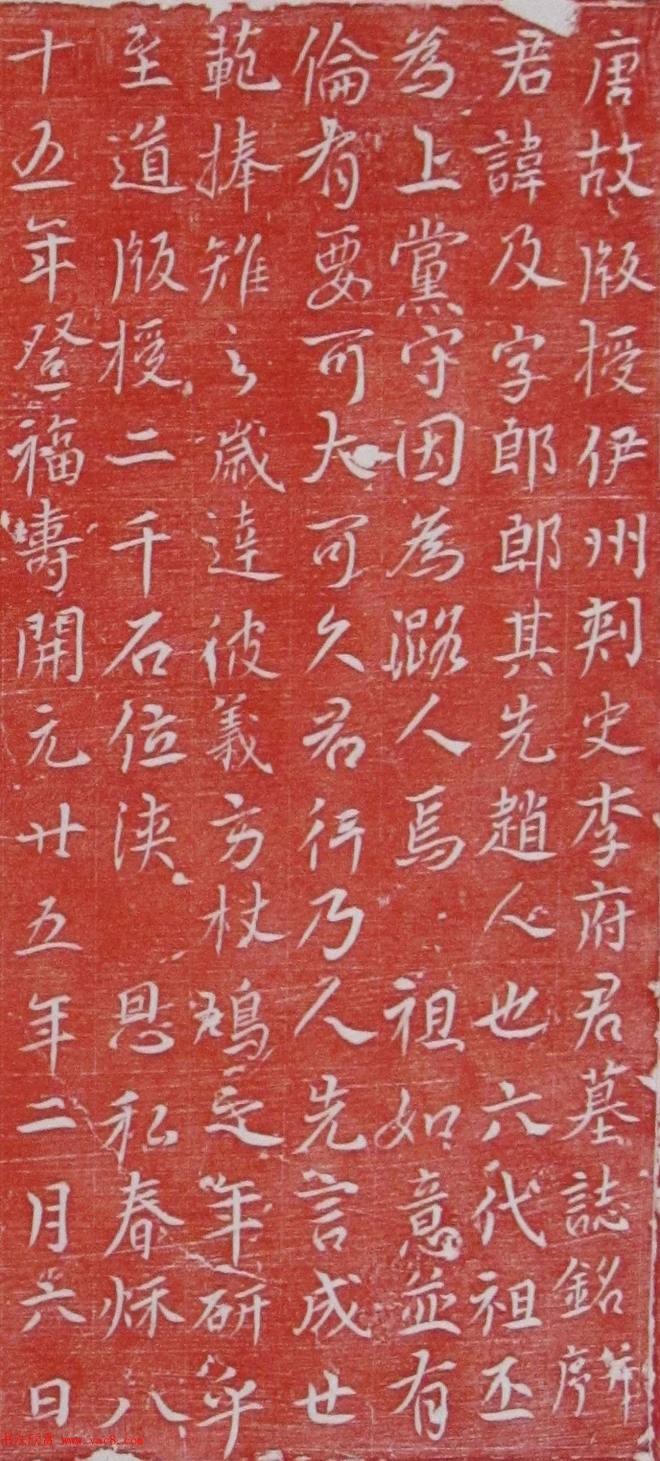 唐故版授伊州刺史李府君墓誌銘并序
君諱及字郎郎其先趙人也六代祖丕
為上黨守因為潞人焉祖如意並有
倫有要可大可久君行乃人先言成世
範捧雉之歲達彼義方杖鳩之年研乎
至道版授二千石位浹恩私春秋八
十五年登福壽開元廿五年二月六日
www.yac8.com